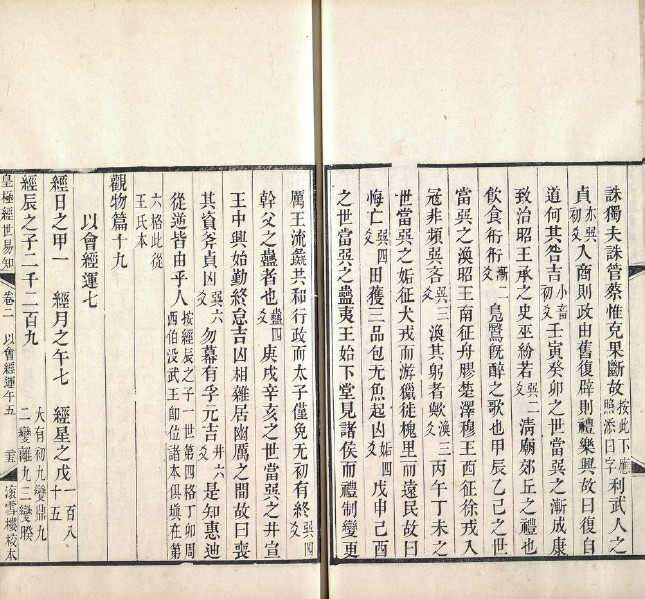 誅獨夫誅管蔡惟克果斷故按此下應照添曰字利武人之
貞亦巽初爻入商則政由舊復辟則禮樂興故曰復自
道何其咎吉小畜初爻壬寅癸卯之世當巽之漸成康
致治昭王承之史巫紛若巽二爻淸廟郊丘之禮也
飲食衎衎漸二爻鳧鷖旣醉之歌也甲辰乙巳之世
當巽之渙昭王南征舟膠楚澤穆王西征徐戎入
冦非頻巽吝巽三爻渙其躬者歟渙三爻丙午丁未之
世當巽之姤征犬戎而游獵徙槐里而遠民故曰
悔亡巽四爻田獲三品包无魚起凶姤四爻戊申己酉
之世當巽之蠱夷王始下堂見諸侯而禮制變更
厲王流彘共和行政而太子僅免无初有終巽四爻
幹父之蠱者也蠱四爻庚戌辛亥之世當巽之井宣
王中興始勤終怠吉凶相雜居幽厲之間故曰喪
其資斧貞凶巽六爻勿幕有孚元吉井六爻是知惠迪
從逆皆由乎人按經辰之子一世第四格丁卯周西伯没武王卽位諸本俱塡在第
六格此從王氏本
觀物篇十九
以會經運七
經日之甲一 經月之午七 經星之戌一百八十五
經辰之子二千二百九 大有初九變鼎九二變離九三變睽
皇極經世易知 卷二 以會經運午五 滚雪樓校本